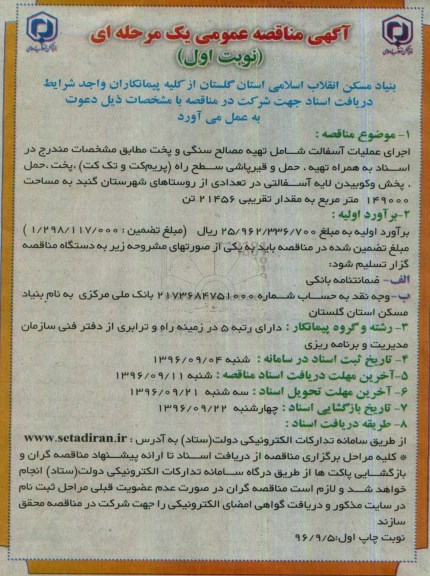 آگهی مناقصه عمومی یک مرحله ای
(نوبت اول)
بنیاد مسکن انقلاب اسلامی استان گلستان از کلیه پیمانکاران واجد شرایط
دریافت اسناد جهت شرکت در مناقصه با مشخصات ذیل دعوت
به عمل می آورد
۱- موضوع مناقصه :
اجرای عملیات آسفالت شامل تهیه مصالح سنگی و پخت مطابق مشخصات مندرج در
اسناد به همراه تهیه ، حمل و قیرپاشی سطح راه (پریمکت و تک کت) ،پخت ،حمل
، پخش وکوبیدن لایه آسفالتی در تعدادی از روستاهای شهرستان گنبد به مساحت
۱۴۹۰۰۰ متر مربع به مقدار تقریبی ۲۱۴۵۶ تن
۲-برآورد اولیه :
برآورد اولیه به مبلغ ۲۵/۹۶۲/۳۳۶/۷۰۰ ریال (مبلغ تضمین : ۱/۲۹۸/۱۱۷/۰۰۰ )
مبلغ تضمین شده در مناقصه باید به یکی از صورتهای مشروحه زیر به دستگاه مناقصه
گزار تسلیم شود:
الف- ضمانتنامه بانکی
ب-وجه نقد به حساب شماره ۲۱۷۳۶۸۴۷۵۱۰۰۰ بانک ملی مرکزی به نام بنیاد
مسکن استان گلستان
۳- رشته و گروه پیمانکار : دارای رتبه ۵ در زمینه راه و ترابری از دفتر فنی سازمان
مدیریت و برنامه ریزی
۴- تاریخ ثبت اسناد در سامانه : شنبه ۱۳۹۶/۰۹/۰۴
۵-آخرین مهلت دریافت اسناد مناقصه : شنبه ۱۳۹۶/۰۹/۱۱
۶- آخرین مهلت تحویل اسناد : سه شنبه ۱۳۹۶/۰۹/۲۱
۷- تاریخ بازگشایی اسناد : چهارشنبه ۱۳۹۶/۰۹/۲۲
۸- طریقه دریافت اسناد :
از طریق سامانه تدارکات الکترونیکی دولت(ستاد) به آدرس : www.setadiran.ir
* کلیه مراحل برگزاری مناقصه از دریافت اسناد تا ارائه پیشنهاد مناقصه گران و
بازگشایی پاکت ها از طریق درگاه سامانه تدارکات الکترونیکی دولت(ستاد) انجام
خواهد شد و لازم است مناقصه گران در صورت عدم عضویت قبلی مراحل ثبت نام
در سایت مذکور و دریافت گواهی امضای الکترونیکی را جهت شرکت در مناقصه محقق
سازند
نوبت چاپ اول:۹۶/۹/۵